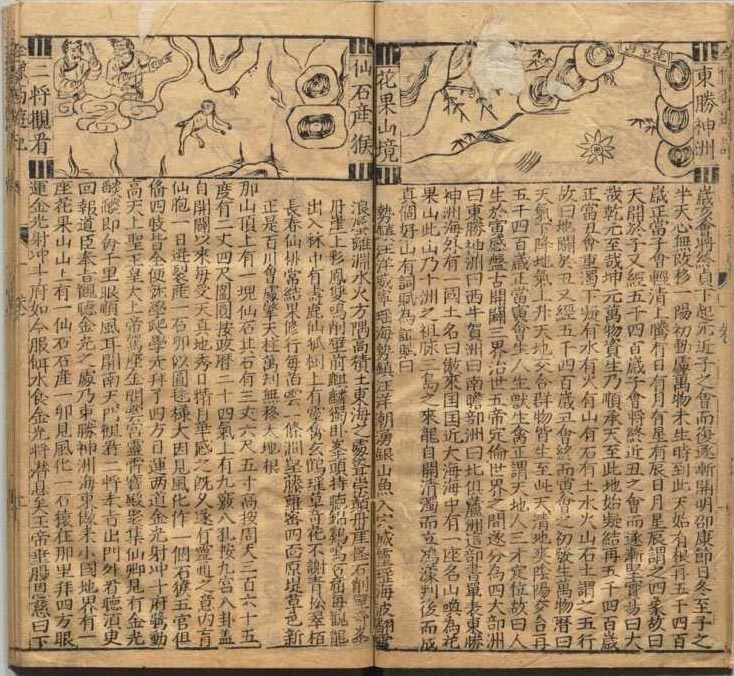 東勝神洲
花果山
花果山境
歲交會將終貞下起元近子之會而復逐漸開明邵康節曰冬至子之
半天心無改移一陽初動處萬物未生時到此天始有根再五千四百
歲正當子會輕清上騰有日有月有星有辰日月星辰謂之四象故曰
天開於子又經五千四百歲子會將終近丑之會而逐漸堅實易曰大
哉乾元至哉坤元萬物資生乃順承天至此地始凝結再五千四百歲
正當丑會重濁下凝有水有火有山有石有土水火山石土謂之五行
故曰地闢於丑又經五千四百歲丑會終而寅會之初發生萬物曆曰
天氣下降地氣上升天地交合群物皆生至此天清地爽陰陽交合再
五千四百歲正當寅會生人生獸生禽正謂天地人三才定位故曰人
生於寅感盤古開闢三皇治世五帝定倫世界之間遂分為四大部洲
曰東勝神洲曰西牛賀洲曰南瞻部洲曰北俱蘆洲這部書單表東勝
神洲海外有一國土名曰傲來國国近大海海中有一座名山喚為花
果山此山乃十洲之祖脉三島之來龍自開清濁而立鴻濛判後而成
真個好山有詞賦為証賦曰
勢鎮汪洋威寧瑶海勢鎮汪洋潮湧銀山魚入穴威靈瑶海波翻雪
仙石産猴
二將觀看
浪蜃離淵水火方隅高積土東海之處聳崇巔丹崖怪石削壁奇峯
丹崖上彩鳳雙鳴削壁前麒麟獨卧峯頭時聽錦鷄鳴石窟每觀龍
出入林中有壽鹿仙狐樹上有靈禽玄鶴瑶草奇花不謝青松翠栢
長春仙桃常結果修竹每留雲一條澗壑藤蘿密四面原堤草色新
正是百川會處擎天柱萬刼無移大地根
那山頂上有一塊仙石其石有三丈六尺五寸高按周天三百六十五
度有二丈四尺圍圓按政曆二十四氣上有九竅八孔按九宮八卦盖
自開闢以來每受天真地秀日精月華感之既久遂有靈通之意内育
仙胞一日迸裂産一石卵似圓毬樣大因見風化作一個石猴五官俱
偹四肢皆全便就學爬學走拜了四方目運兩道金光射冲斗府驚動
高天上聖玉皇大上帝駕座金闕雲宮靈霄寶殿聚集仙卿見有金光
燄燄即命千里眼順風耳開南天門觀看二將奉旨出門外看聽須臾
回報道臣奉旨觀聽金光之處乃東勝神洲海東傲來小國地界有一
座花果山山上有一仙石石産一卵見風化一石猿在那里拜四方眼
運金光射冲斗府如今服餌水食金光將潜息矣玉帝垂賜恩慈曰下